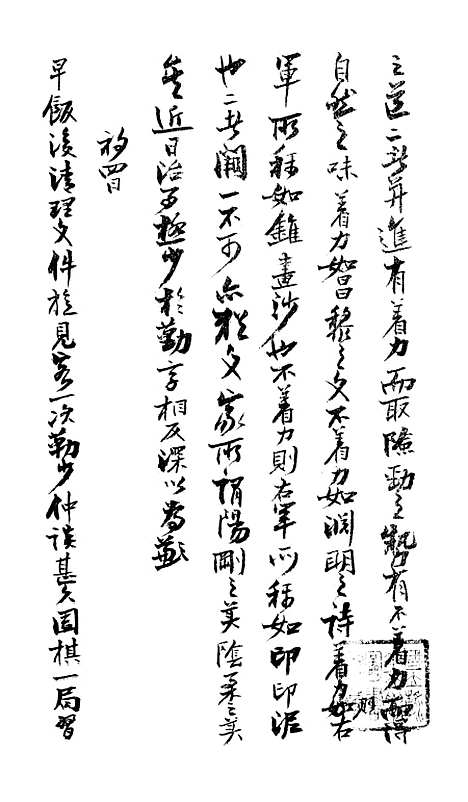 之道二者并進有着力而取險勁之勢有不着力而得
自然之味着力如昌黎之文不着力如淵明之詩着力如右
軍所稱如錐畫沙也不着力則右軍所稱如印印泥
也二者闕一不可亦猶文家所謂陽剛之美陰柔之美
矣近日治事極少於勤字相反深以為歉
初四日
早飯後清理文件旋見客一次勒少仲談甚久圍棋一局習